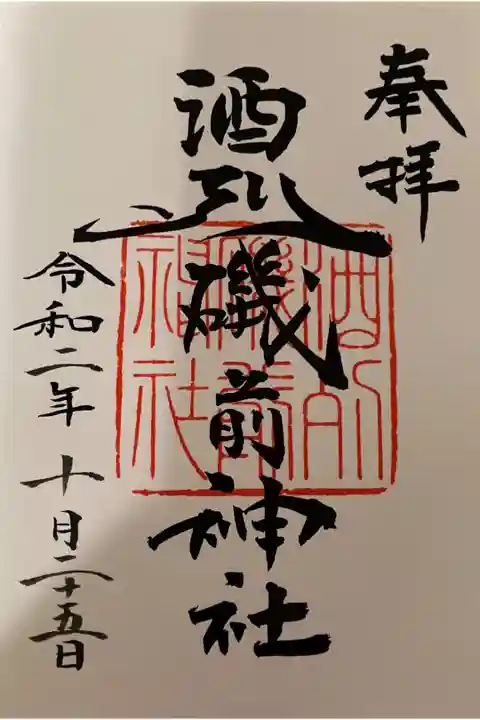 奉拝
酒列磯前神社
酒列
磯前
神社
令和二年 十月二十五日